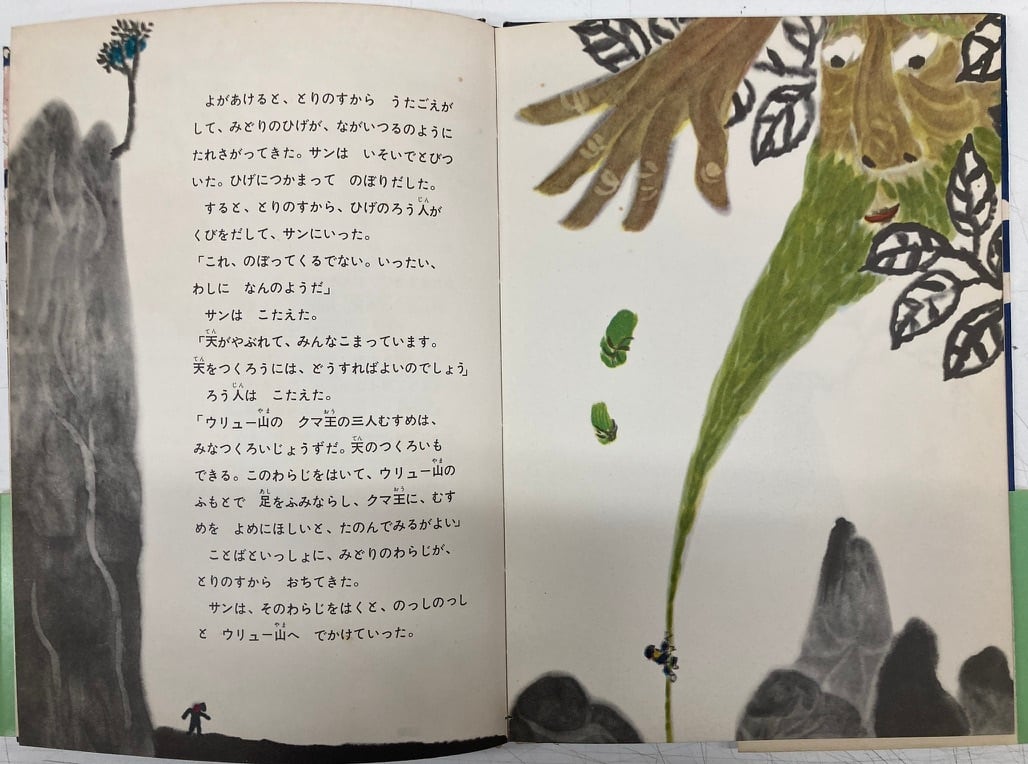 よがあけると、とりのすから　うたごえが
して、みどりのひげが、ながいつるのように
たれさがってきた。サンは　いそいでとびつ
いた。ひげにつかまって　のぼりだした。
すると、とりのすから、ひげのろう人が
くびをだして、サンにいった。
「これ、のぼってくるでない。いったい、
わしに　なんのようだ」
サンは　こたえた。
「天がやぶれて、みんなこまっています。
天をつくろうには、どうすればよいのでしょう」
ろう人は　こたえた。
「ウリュー山の　クマ王の三人むすめは、
みなつくろいじょうずだ。天のつくろいも
できる。このわらじをはいて、ウリュー山の
ふもとで　足をふみならし、クマ王に、むす
めを　よめにほしいと、たのんでみるがよい」
ことばといっしょに、みどりのわらじが、
とりのすから　おちてきた。
サンは、そのわらじをはくと、のっしのっし
と　ウリュー山へ　でかけていった。